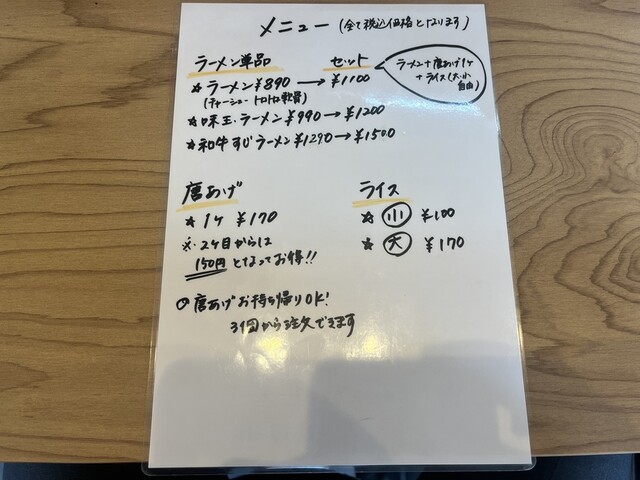 メニュー (全て税込価格となります)
ラーメン単品 セット
ラーメン+唐あげ1ヶ
+ライス(大・小
自由)
☆ラーメン¥890→¥1100
(チャーシュー トロトロ軟骨)
☆味玉ラーメン¥990→¥1200
☆和牛すじラーメン¥1290→¥1500
唐あげ
☆1ヶ ¥170
※2ヶ目からは
150円となってお得!!
ライス
☆小 ¥100
☆大 ¥170
○唐あげお持ち帰りOK!
3個から注文できます